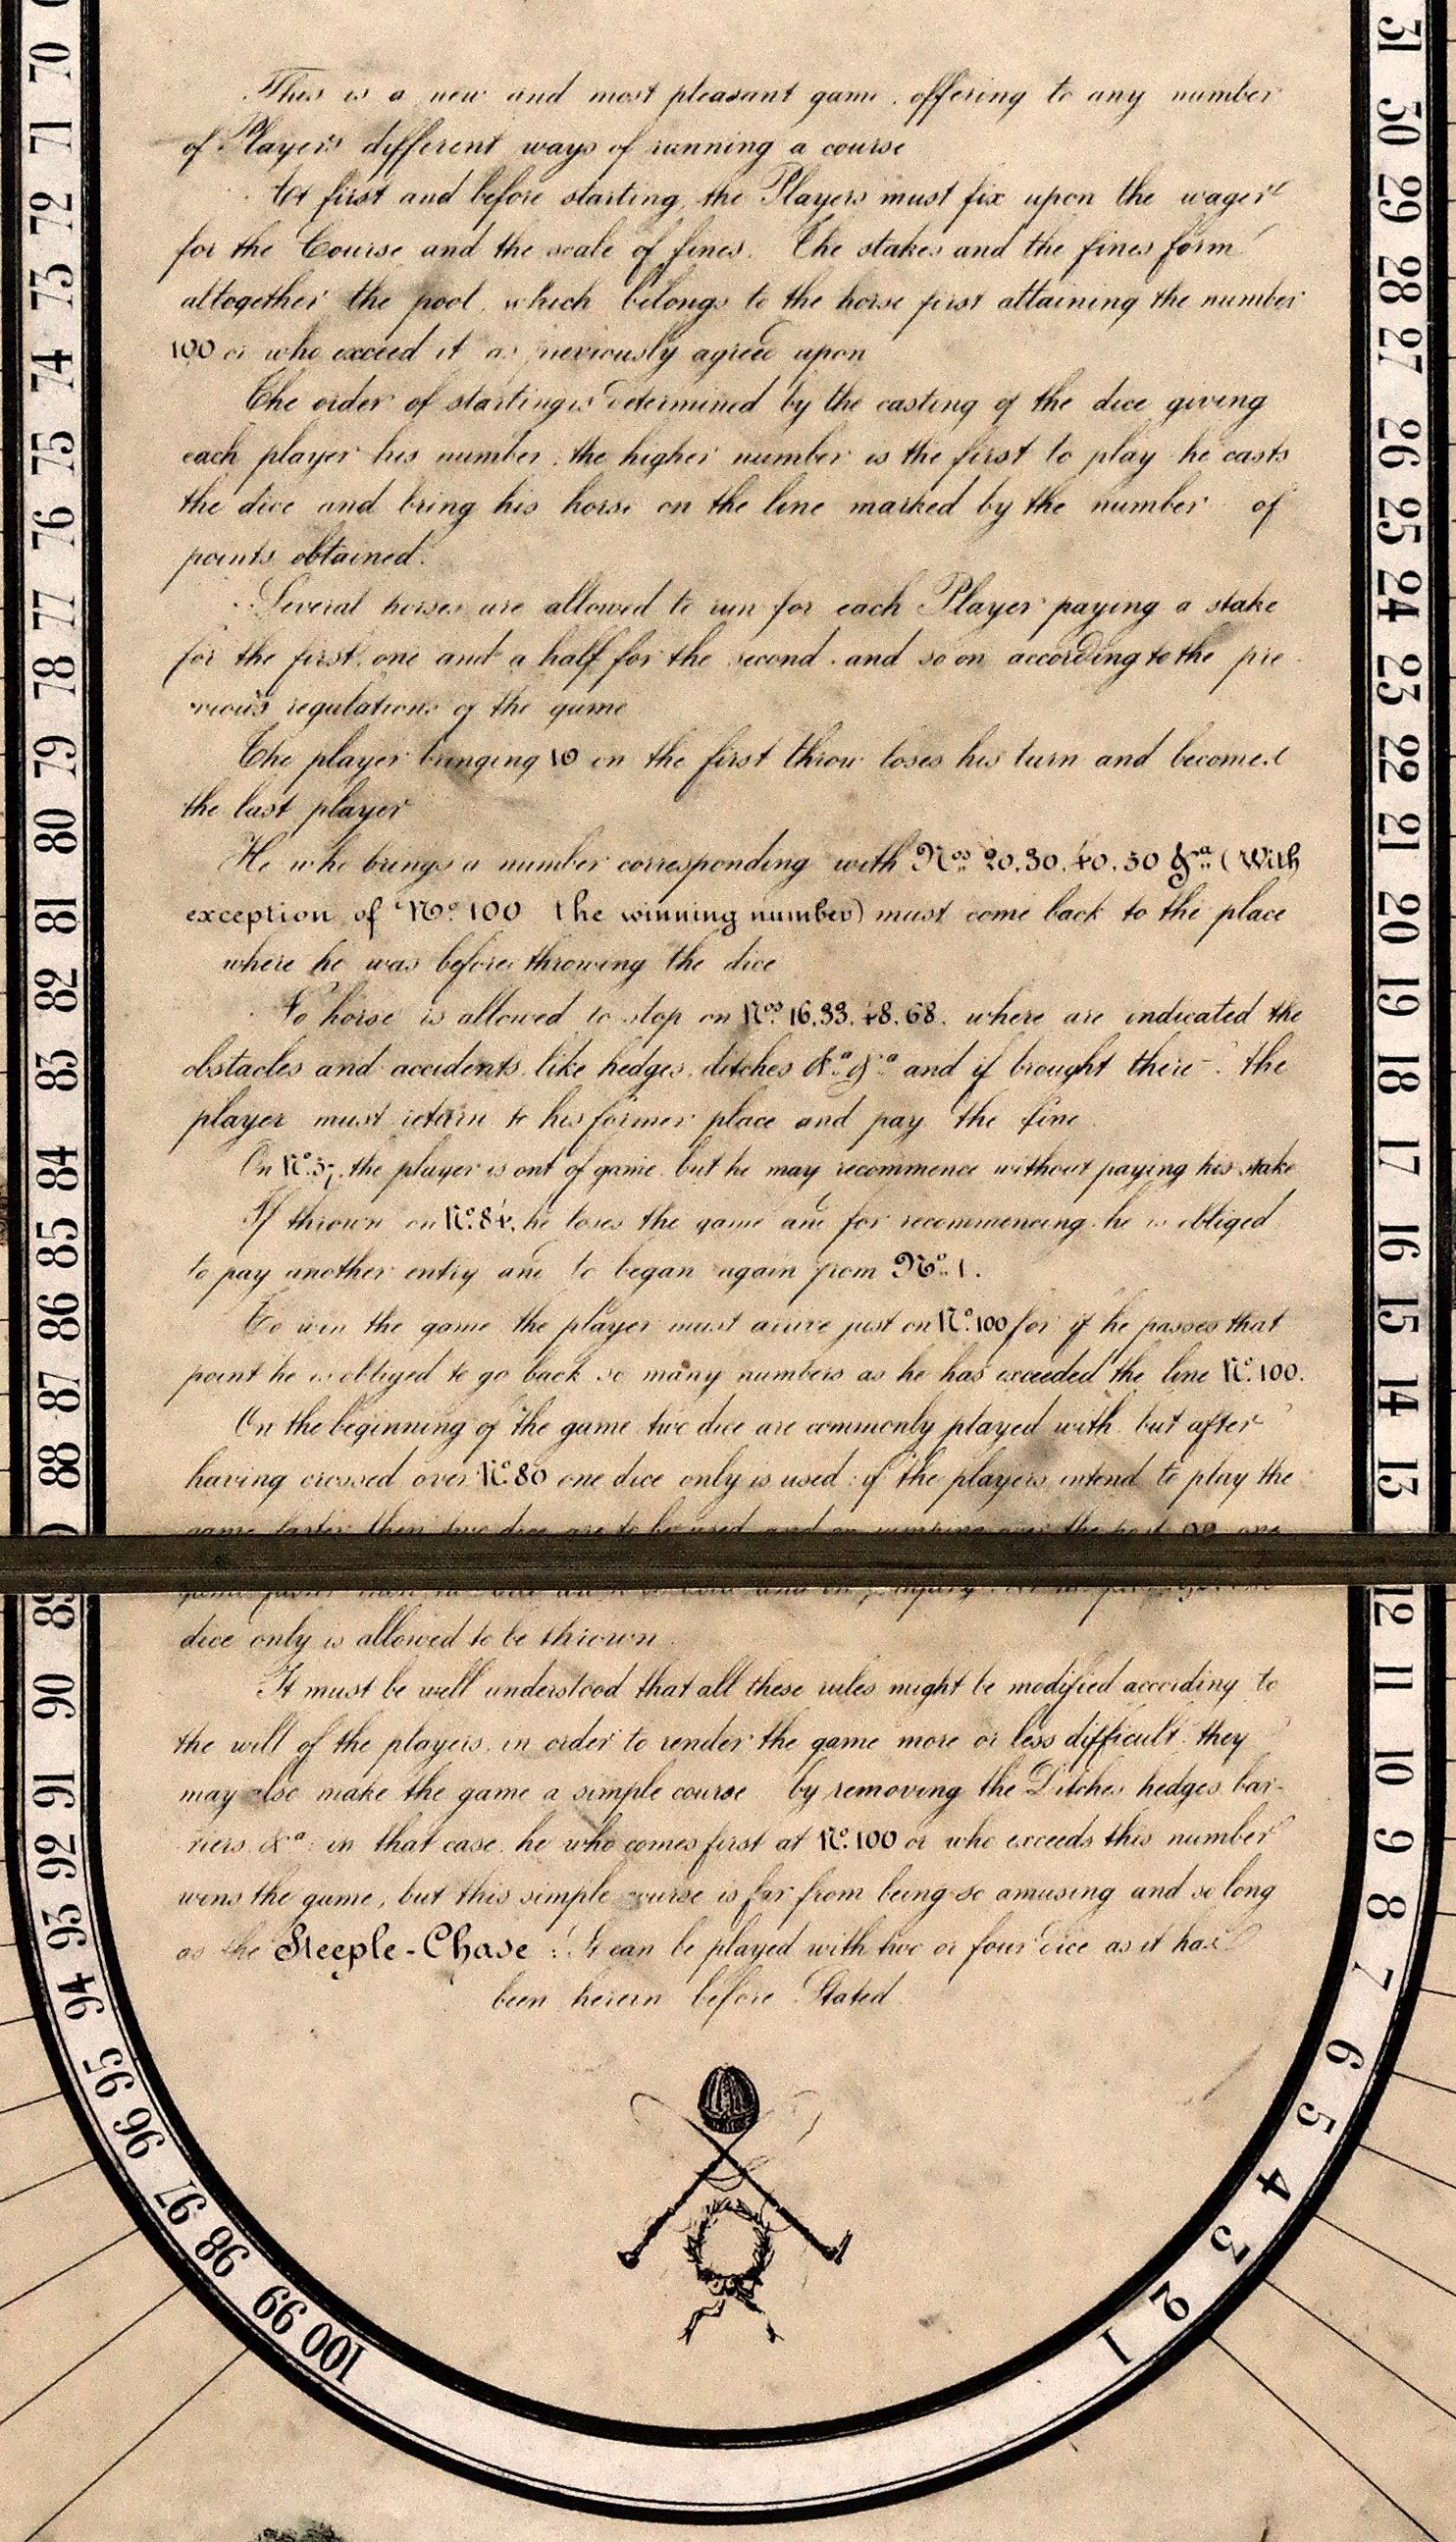 This is a new and most pleasant game, offering to any number
of Players different ways of running a course
At first and before starting, the Players must fix upon the wager
for the Course and the scale of fines. The stakes and the fines form
altogether the pool, which belongs to the horse first attaining the number
100 or who exceed it as previously agreed upon
The order of starting is determined by the casting of the dice giving
each player his number, the higher number is the first to play he casts
the dice and bring his horse on the line marked by the number of
points obtained.
Several horses are allowed to run for each Player paying a stake
for the first, one and a half for the second, and so on, according to the pre-
vious regulations of the game
The player bringing 10 on the first throw loses his turn and becomes
the last player
He who brings a number corresponding with Nos 20.30.40.50 &a (With
exception of No. 100 the winning number) must come back to the place
where he was before throwing the dice
No horse is allowed to stop on Nos 16.33.48.68. where are indicated the
obstacles and accidents, like hedges, ditches &a &a and if brought there. the
player must return to his former place and pay the fine
On No. the player is out of game, but he may recommence without paying his stake
If thrown on No. 84, he loses the game and for recommencing, he is obliged
to pay another entry and to began again from No. 1.
To win the game the player must arrive just on No. 100 for if he passes that
point he is obliged to go back so many numbers as he has exceeded the line No. 100.
On the beginning of the game two dice are commonly played with, but after
having crossed over No. 80 one dice only is used: if the players intend to play the
game faster then two dice are to be used and on jumping over the post 90 one
dice only is allowed to be thrown.
It must be well understood that all these rules might be modified according to
the will of the players, in order to render the game more or less difficult. they
may also make the game a simple course by removing the Ditches hedges bar-
riers &a: in that case, he who comes first at No. 100 or who exceeds this number
wins the game, but this simple course is far from being so amusing and so long
as the Steeple-Chase: It can be played with two or four dice as it has
been herein before Stated
70
71
72
73
74
75
76
77
78
79
80
81
82
83
84
85
86
87
88
89
90
91
92
93
94
95
96
97
98
99
100
1
2
3
4
5
6
7
8
9
10
11
12
13
14
15
16
17
18
19
20
21
22
23
24
25
26
27
28
29
30
31